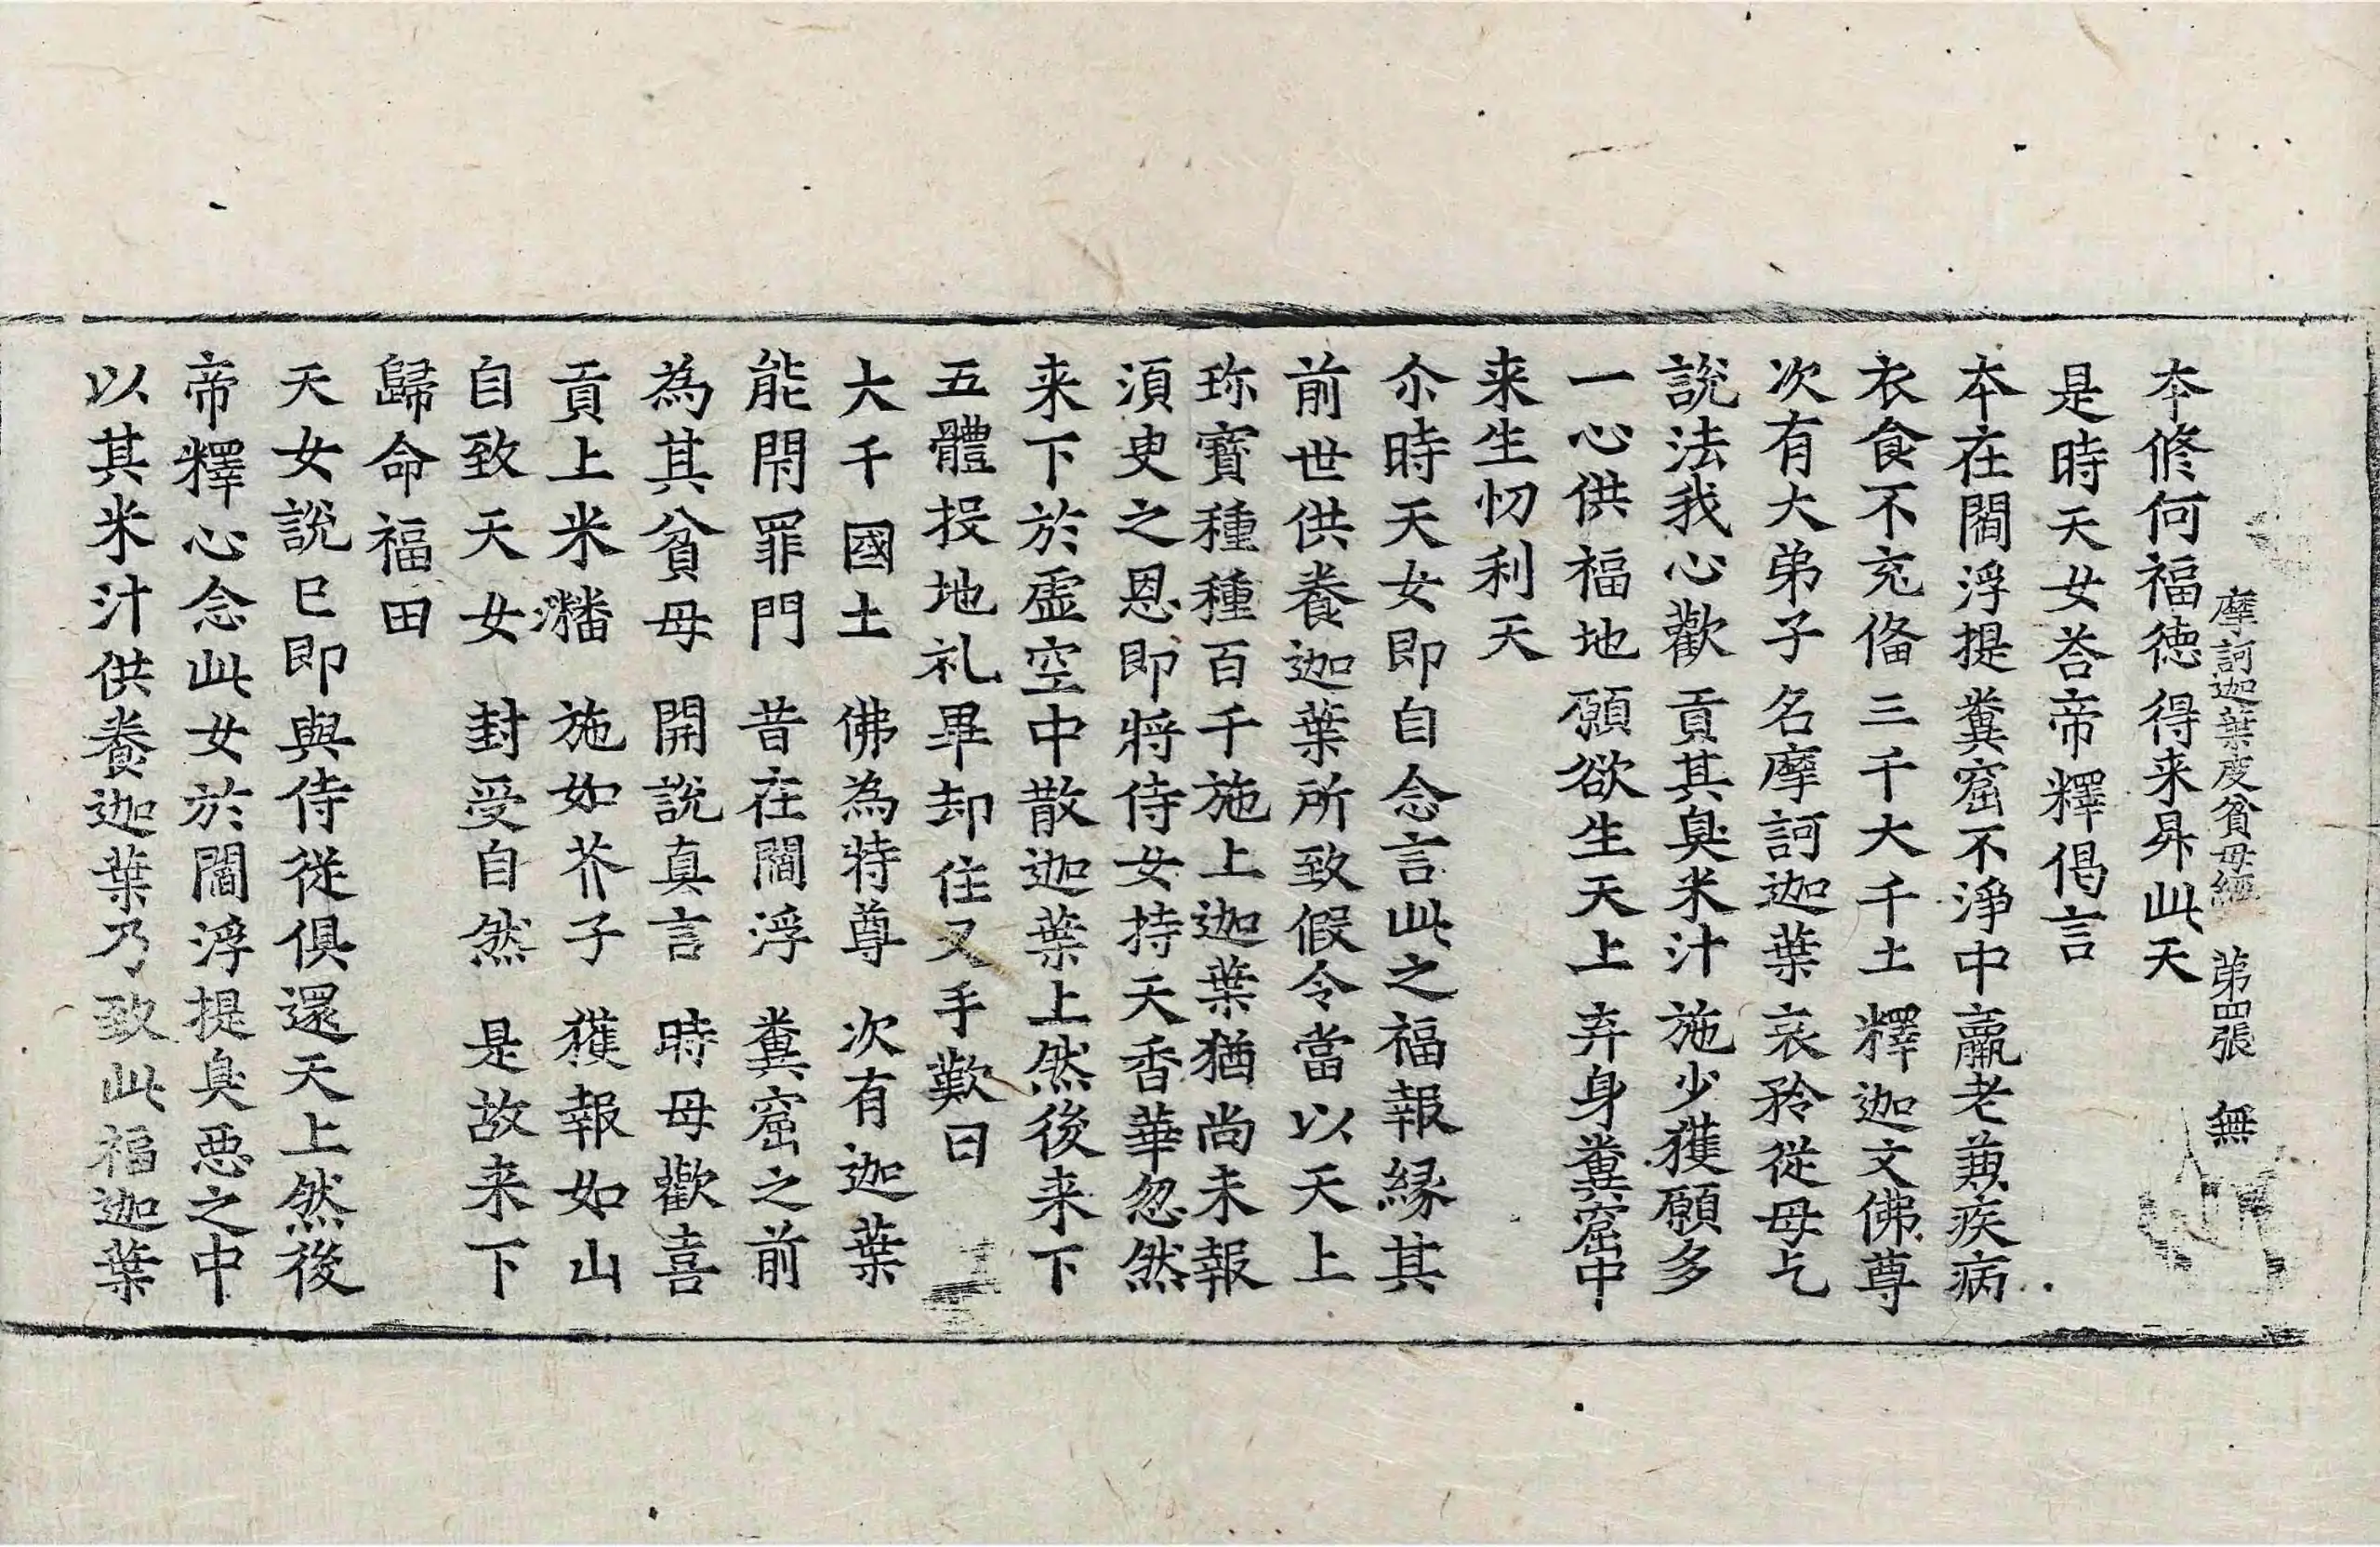 摩訶迦葉度貧母經　第四張　無
本修何福德　得来昇此天
是時天女荅帝釋偈言
本在閻浮提　糞窟不淨中　羸老兼疾病
衣食不充俻　三千大千土　釋迦文佛尊
次有大弟子　名摩訶迦葉　哀矜從母乞
說法我心歡　貢其臭米汁　施少獲願多
一心供福地　願欲生天上　弃身糞窟中
来生忉利天
尒時天女即自念言此之福報縁其
前世供養迦葉所致假令當以天上
珎寶種種百千施上迦葉猶尚未報
湏臾之恩即將侍女持天香華忽然
来下於虛空中散迦葉上然後来下
五體投地礼畢却住叉手歎曰
大千國土　佛為特尊　次有迦葉
能閇罪門　昔在閻浮　糞窟之前
為其貧母　開說真言　時母歡喜
貢上米潘　施如芥子　獲報如山
自致天女　封受自然　是故来下
歸命福田
天女說已即與侍從俱還天上然後
帝釋心念此女於閻浮提臭惡之中
以其米汁供養迦葉乃致此福迦葉